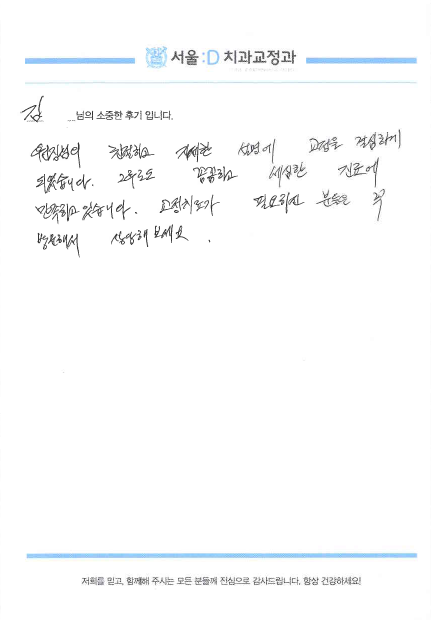 서울:D 치과교정과
김 님의 소중한 후기 입니다.
원장님의 친절하고 자세한 설명에 교정을 결심하게
되었습니다. 그후로도 꼼꼼하고 세심한 진료에
만족하고 있습니다. 교정치료가 필요하신 분들은 꼭
방문해서 상담해 보세요.
저희를 믿고, 함께해 주시는 모든 분들께 진심으로 감사드립니다. 항상 건강하세요!